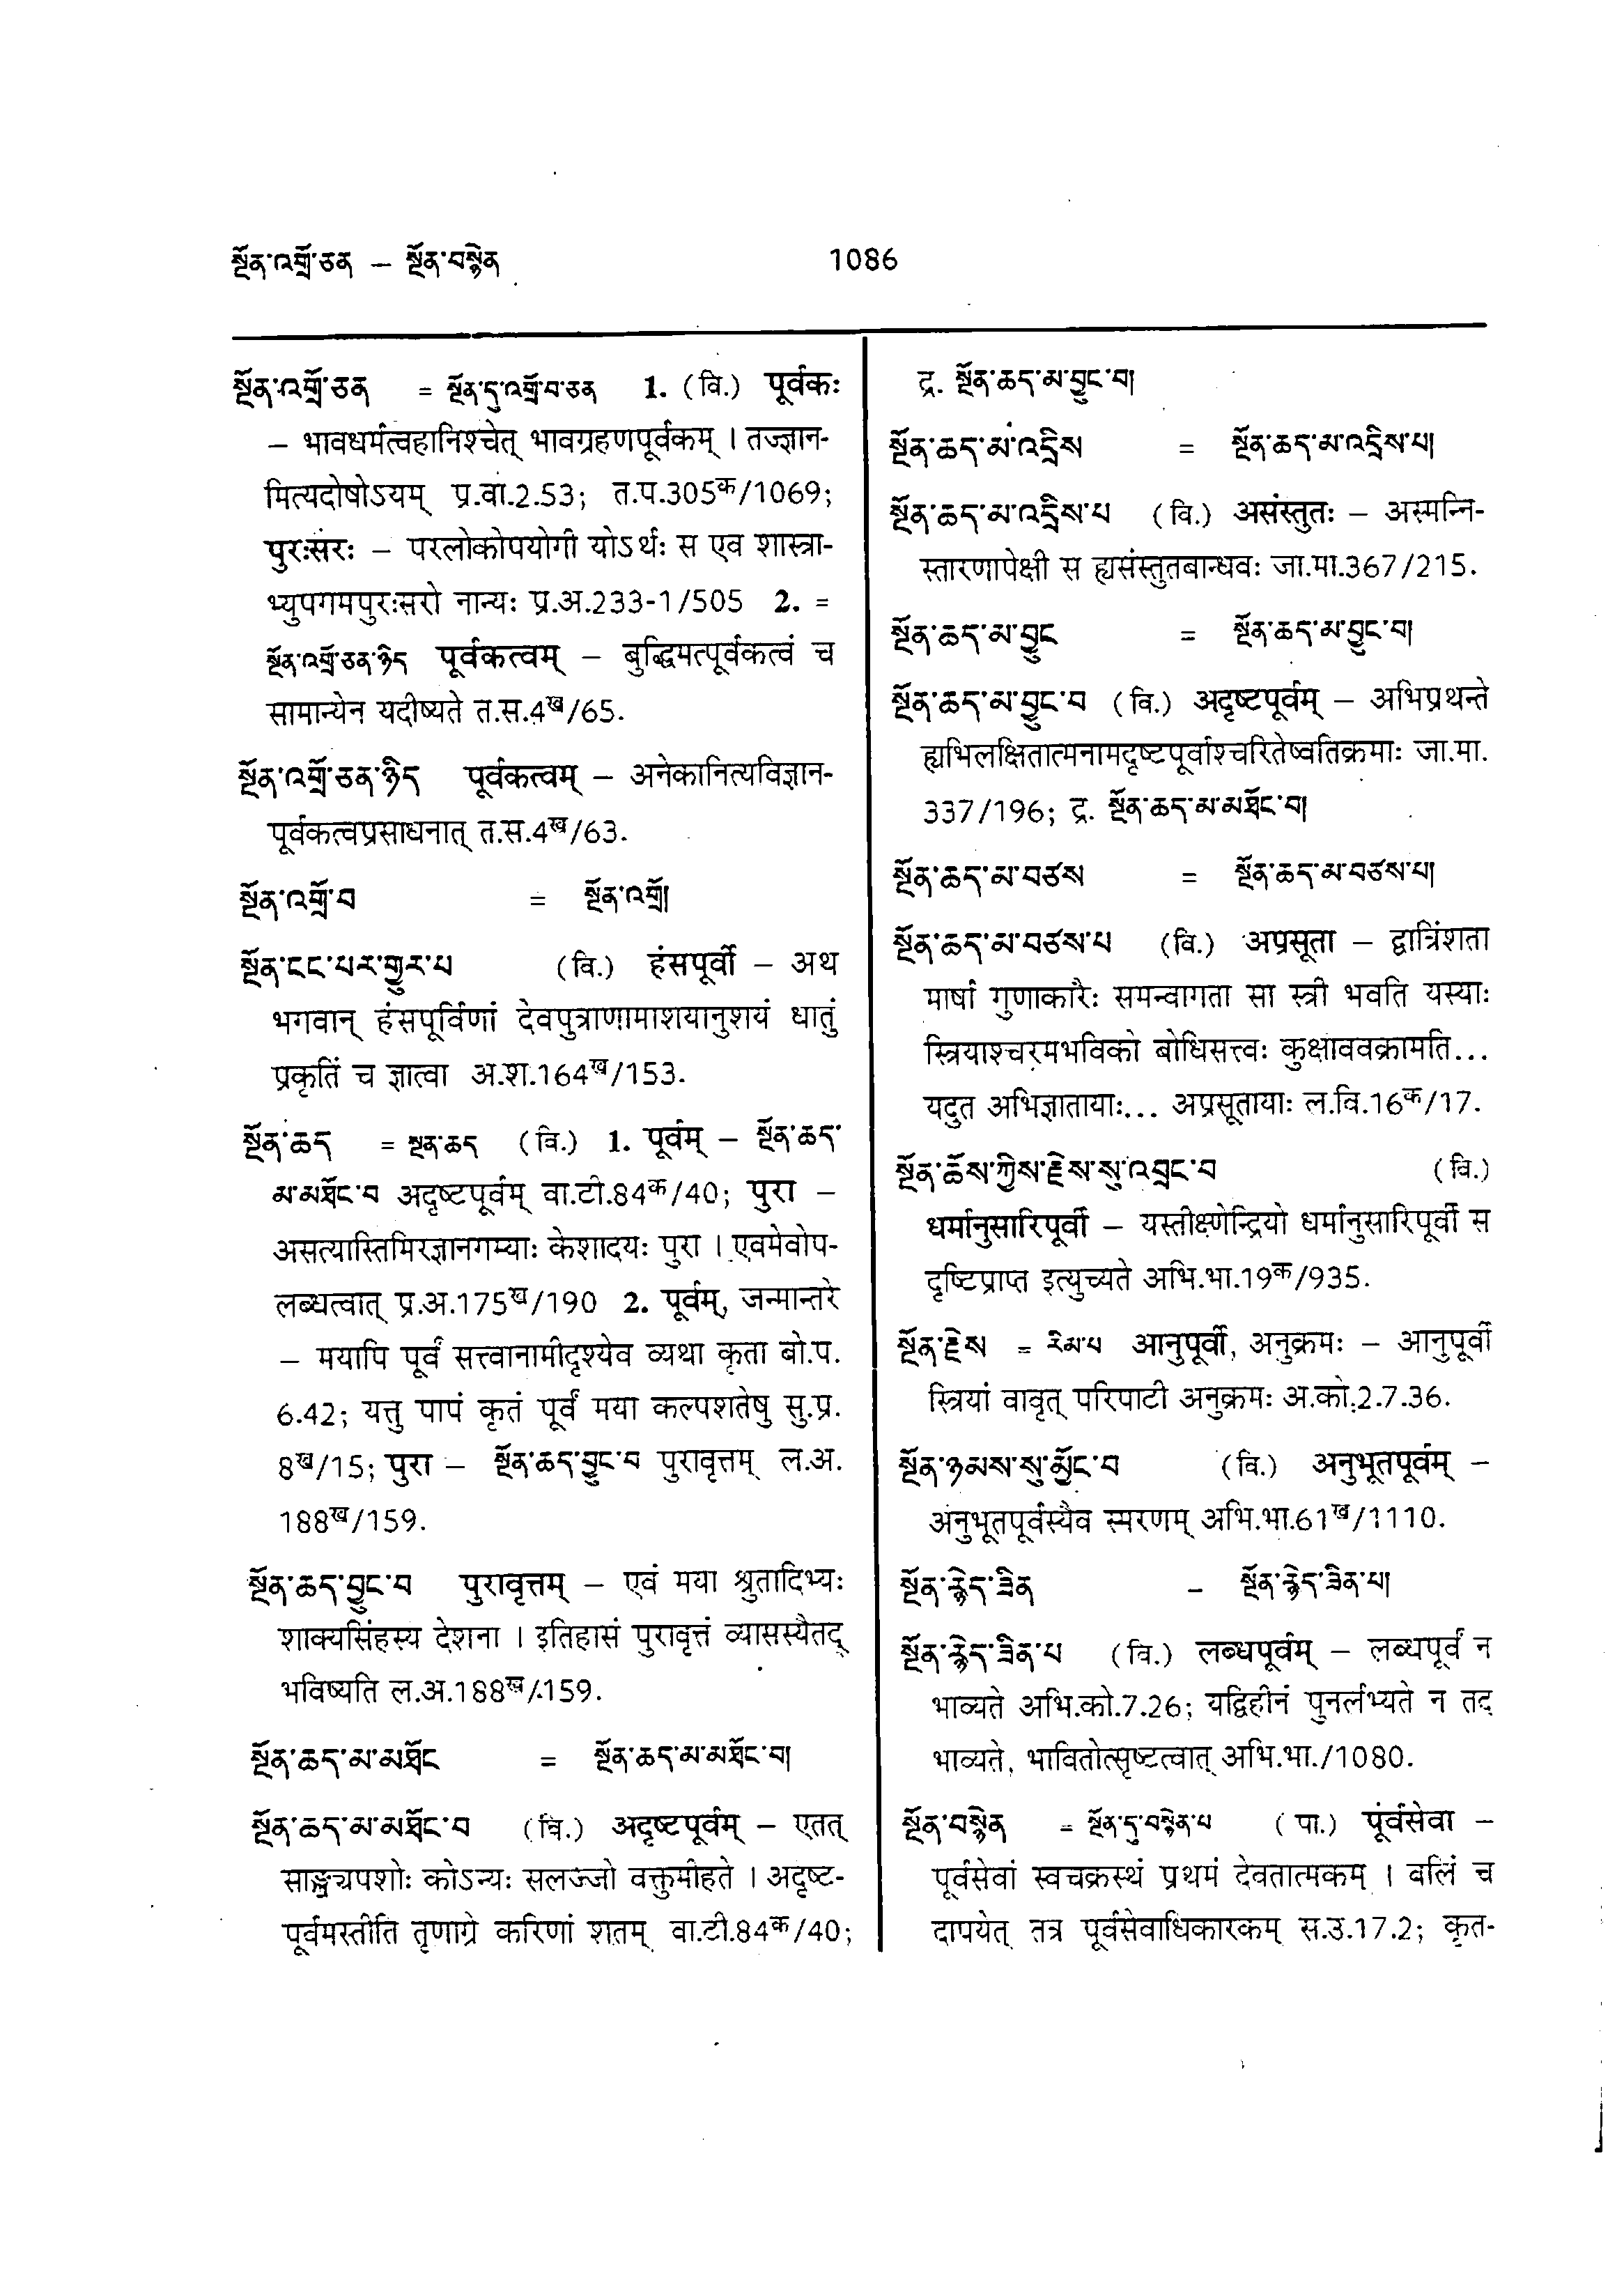 སྔོན་འགྲོ་ཅན – སྔོན་བསྙེན 1086
སྔོན་འགྲོ་ཅན = སྔོན་དུ་འགྲོ་བ་ཅན 1. (वि.) पूर्वकः
– भावधर्मत्वहानिश्चेत् भावग्रहणपूर्वकम् । तज्ज्ञान-
मित्यदोषोऽयम् प्र.वा.2.53; त.प.305क/1069;
पुरःसरः – परलोकोपयोगी योऽर्थः स एव शास्त्रा-
भ्युपगमपुरःसरो नान्यः प्र.अ.233-1/505 2. =
སྔོན་འགྲོ་ཅན་ཉིད पूर्वकत्वम् – बुद्धिमत्पूर्वकत्वं च
सामान्येन यदीष्यते त.स.4ख/65.
སྔོན་འགྲོ་ཅན་ཉིད पूर्वकत्वम् – अनेकानित्यविज्ञान-
पूर्वकत्वप्रसाधनात् त.स.4ख/63.
སྔོན་འགྲོ་བ = སྔོན་འགྲོ།
སྔོན་ངང་པར་གྱུར་པ (वि.) हंसपूर्वी – अथ
भगवान् हंसपूर्विणां देवपुत्राणामाशयानुशयं धातुं
प्रकृतिं च ज्ञात्वा अ.श.164ख/153.
སྔོན་ཆད = སྔན་ཆད (वि.) 1. पूर्वम् – སྔོན་ཆད་
མ་མཐོང་བ अदृष्टपूर्वम् वा.टी.84क/40; पुरा –
असत्यास्तिमिरज्ञानगम्याः केशादयः पुरा । एवमेवोप-
लब्धत्वात् प्र.अ.175ख/190 2. पूर्वम्, जन्मान्तरे
– मयापि पूर्वं सत्त्वानामीदृश्येव व्यथा कृता बो.प.
6.42; यत्तु पापं कृतं पूर्वं मया कल्पशतेषु सु.प्र.
8ख/15; पुरा – སྔོན་ཆད་བྱུང་བ पुरावृत्तम् ल.अ.
188ख/159.
སྔོན་ཆད་བྱུང་བ पुरावृत्तम् – एवं मया श्रुतादिभ्यः
शाक्यसिंहस्य देशना । इतिहासं पुरावृत्तं व्यासस्यैतद्
भविष्यति ल.अ.188ख/159.
སྔོན་ཆད་མ་མཐོང = སྔོན་ཆད་མ་མཐོང་བ།
སྔོན་ཆད་མ་མཐོང་བ (वि.) अदृष्टपूर्वम् – एतत्
साङ्ख्यपशोः कोऽन्यः सलज्जो वक्तुमीहते । अदृष्ट-
पूर्वमस्तीति तृणाग्रे करिणां शतम् वा.टी.84क/40;
द्र. སྔོན་ཆད་མ་བྱུང་བ།
སྔོན་ཆད་མ་འདྲིས = སྔོན་ཆད་མ་འདྲིས་པ།
སྔོན་ཆད་མ་འདྲིས་པ (वि.) असंस्तुतः – अस्मन्नि-
स्तारणापेक्षी स ह्यसंस्तुतबान्धवः जा.मा.367/215.
སྔོན་ཆད་མ་བྱུང = སྔོན་ཆད་མ་བྱུང་བ།
སྔོན་ཆད་མ་བྱུང་བ (वि.) अदृष्टपूर्वम् – अभिप्रथन्ते
ह्यभिलक्षितात्मनामदृष्टपूर्वाश्चरितेष्वतिक्रमाः जा.मा.
337/196; द्र. སྔོན་ཆད་མ་མཐོང་བ།
སྔོན་ཆད་མ་བཙས = སྔོན་ཆད་མ་བཙས་པ།
སྔོན་ཆད་མ་བཙས་པ (वि.) अप्रसूता – द्वात्रिंशता
मार्षा गुणाकारैः समन्वागता सा स्त्री भवति यस्याः
स्त्रियाश्चरमभविको बोधिसत्त्वः कुक्षाववक्रामति...
यदुत अभिज्ञातायाः... अप्रसूतायाः ल.वि.16क/17.
སྔོན་ཆོས་ཀྱིས་རྗེས་སུ་འབྲང་བ (वि.)
धर्मानुसारिपूर्वी – यस्तीक्ष्णेन्द्रियो धर्मानुसारिपूर्वी स
दृष्टिप्राप्त इत्युच्यते अभि.भा.19क/935.
སྔོན་རྗེས = རིམ་པ आनुपूर्वी, अनुक्रमः – आनुपूर्वी
स्त्रियां वावृत् परिपाटी अनुक्रमः अ.को.2.7.36.
སྔོན་ཉམས་སུ་མྱོང་བ (वि.) अनुभूतपूर्वम् –
अनुभूतपूर्वस्यैव स्मरणम् अभि.भा.61ख/1110.
སྔོན་རྙེད་ཟིན – སྔོན་རྙེད་ཟིན་པ།
སྔོན་རྙེད་ཟིན་པ (वि.) लब्धपूर्वम् – लब्धपूर्वं न
भाव्यते अभि.को.7.26; यद्विहीनं पुनर्लभ्यते न तद्
भाव्यते, भावितोत्सृष्टत्वात् अभि.भा./1080.
སྔོན་བསྙེན = སྔོན་དུ་བསྙེན་པ (पा.) पूर्वसेवा –
पूर्वसेवां स्वचक्रस्थं प्रथमं देवतात्मकम् । बलिं च
दापयेत् तत्र पूर्वसेवाधिकारकम् स.उ.17.2; कृत-